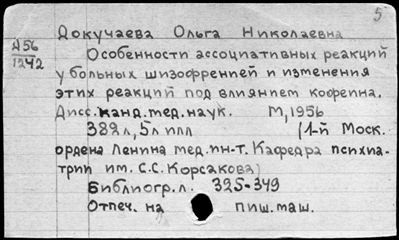 5
Докучаева Ольга Николаевна
Д56
1242
Особенности ассоциативных реакций
у больных шизофренией и изменения
этих реакций под влиянием кофеина.
Дисс.канд.мед.наук. М,1956
382л,5л илл (1-й Моск.
ордена Ленина мед.ин-т. Кафедра психиа-
трии им. С.С.Корсакова)
Библиогр.л. 325-349
Отпеч. на пиш.маш.